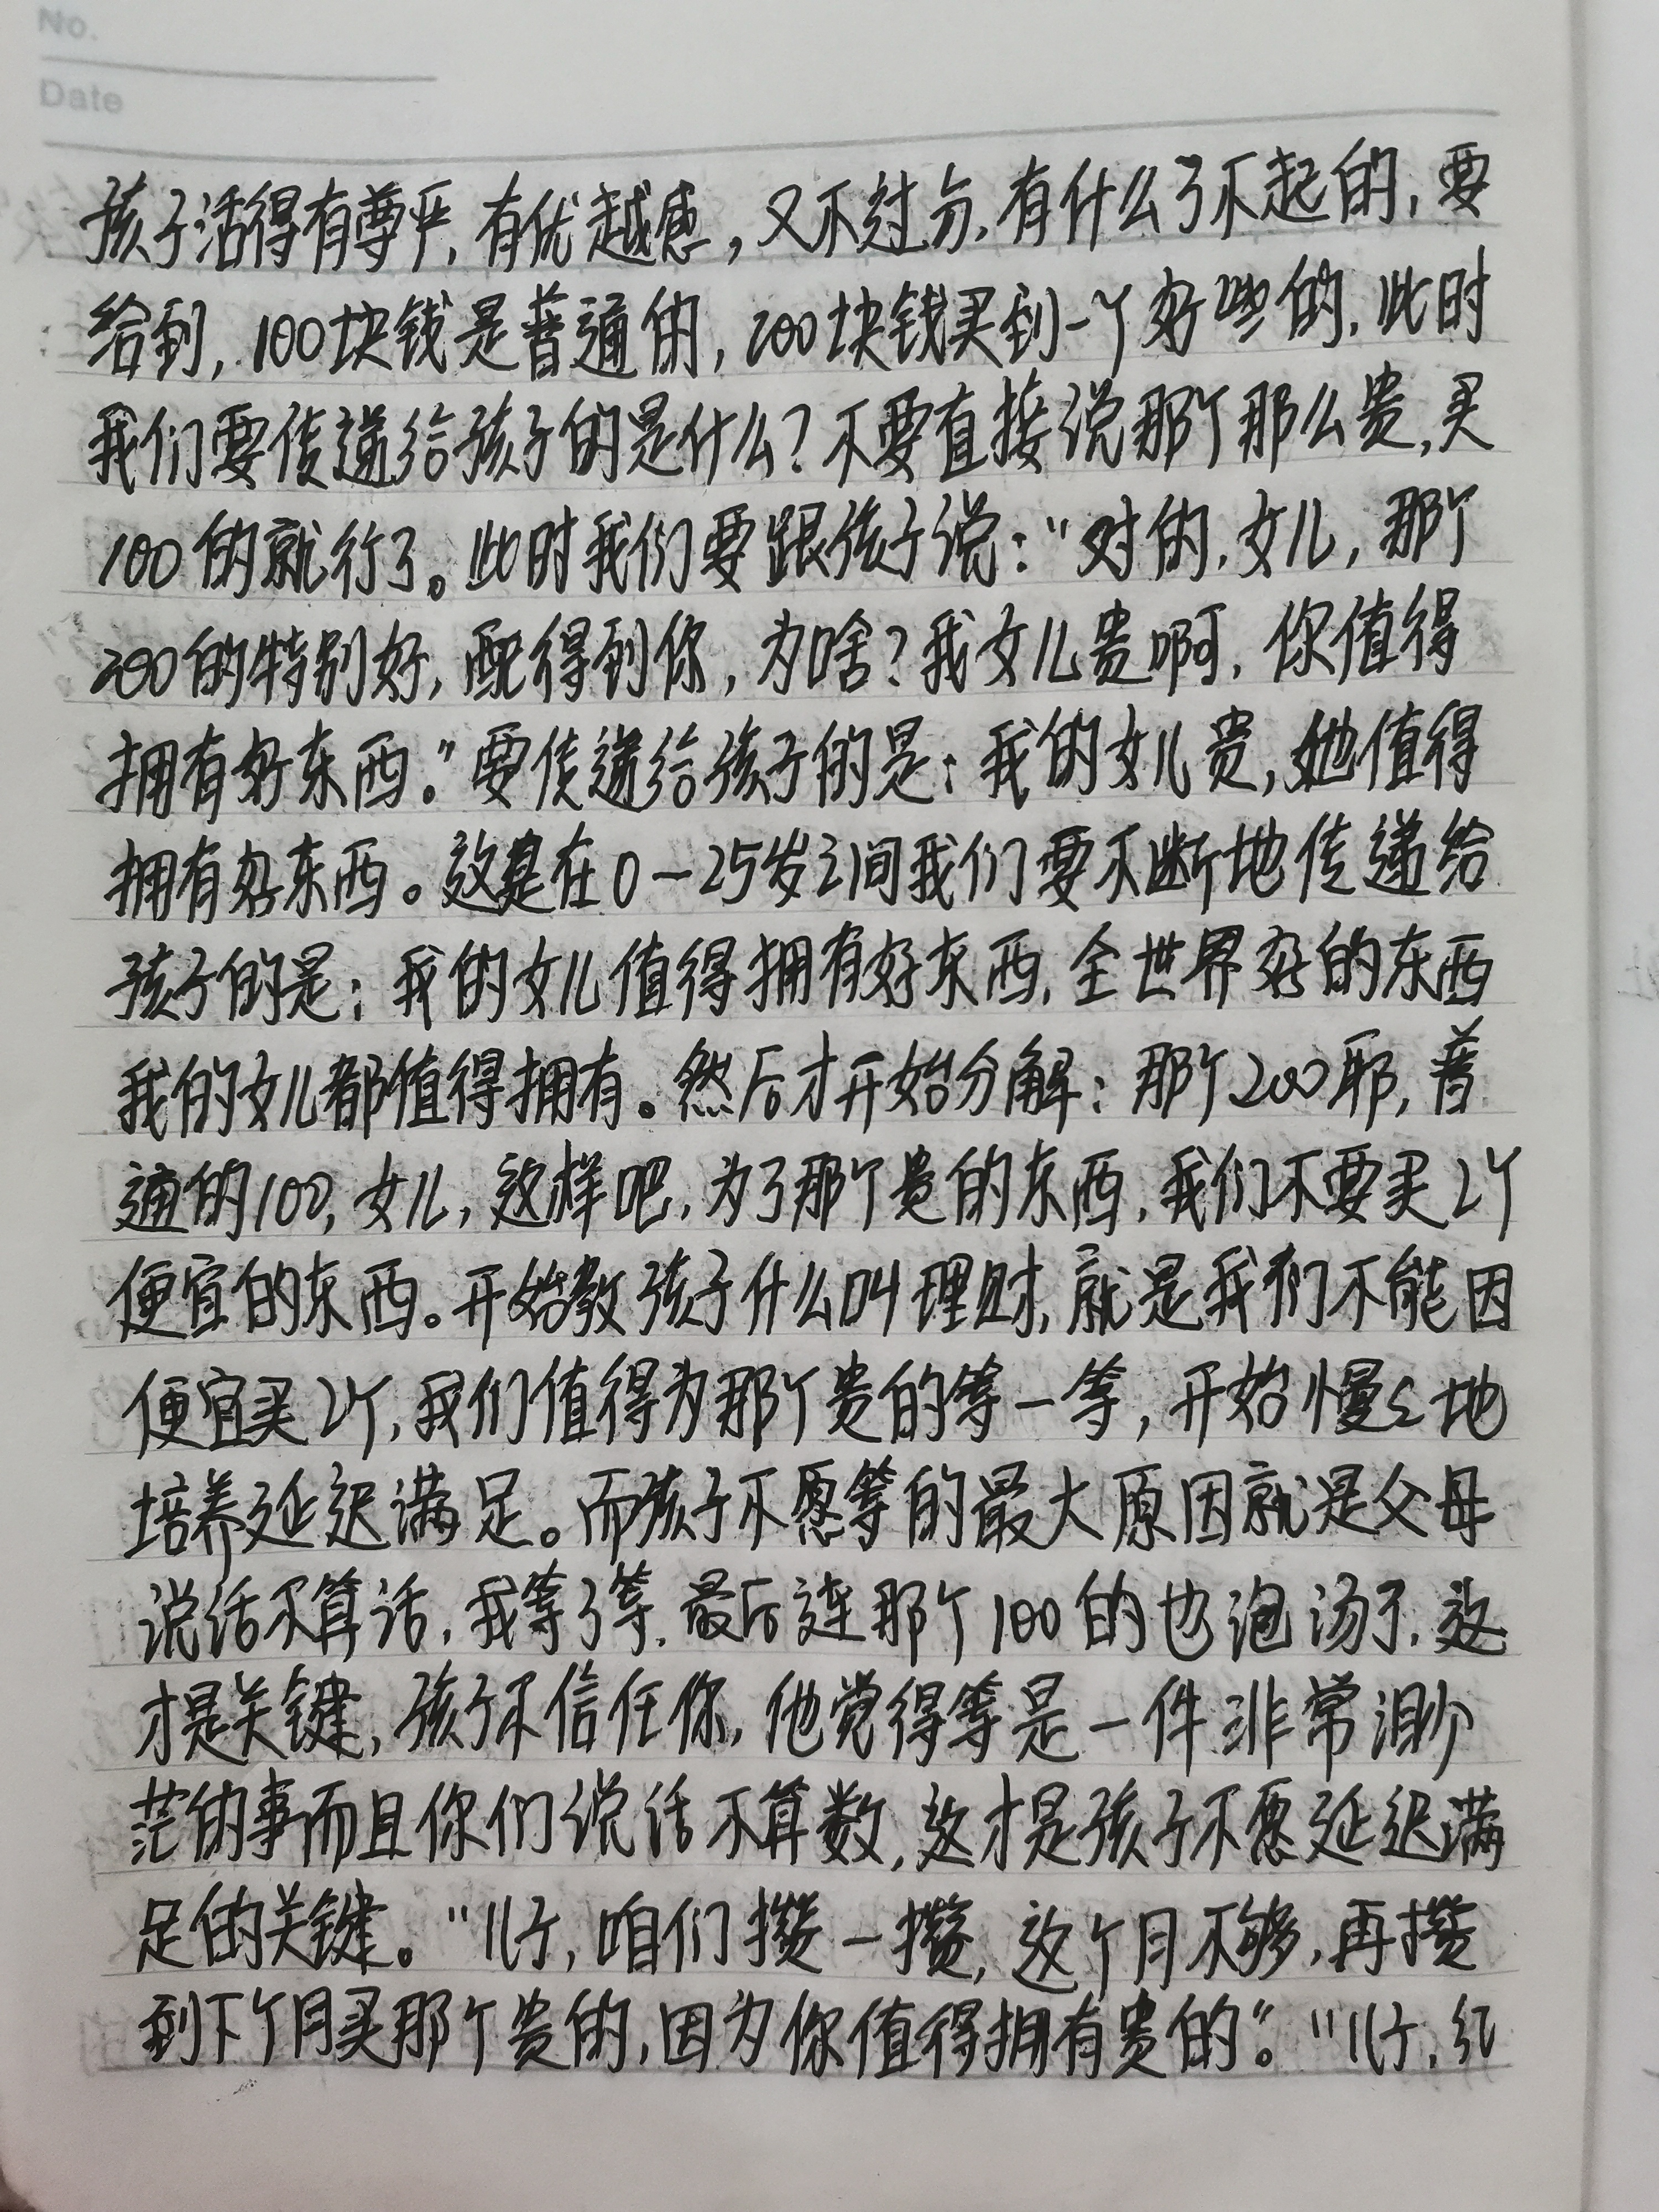 No.
Date
孩子活得有尊严,有优越感,又不过分,有什么了不起的,要
给到,100块钱是普通的,200块钱买到一个好些的,此时
我们要传递给孩子的是什么?不要直接说那个那么贵,买
100的就行了。此时我们要跟孩子说:“对的,女儿,那个
200的特别好,配得到你,为啥?我女儿贵啊,你值得
拥有好东西。”要传递给孩子的是:我的女儿贵,她值得
拥有好东西。这是在0-25岁之间我们要不断地传递给
孩子的是:我的女儿值得拥有好东西,全世界好的东西
我的女儿都值得拥有。然后才开始分解:那个200耶,普
通的100,女儿,这样吧,为了那个贵的东西,我们不要买2个
便宜的东西。开始教孩子什么叫理财,就是我们不能因
便宜买2个,我们值得为那个贵的等一等,开始慢々地
培养延迟满足。而孩子不愿等的最大原因就是父母
说话不算话,我等了等,最后连那个100的也泡汤了,这
才是关键,孩子不信任你,他觉得等是一件非常渺
茫的事而且你们说话不算数,这才是孩子不愿延迟满
足的关键。“儿子,咱们攒一攒,这个月不够,再攒
到下个月买那个贵的,因为你值得拥有贵的”。“儿子,纪